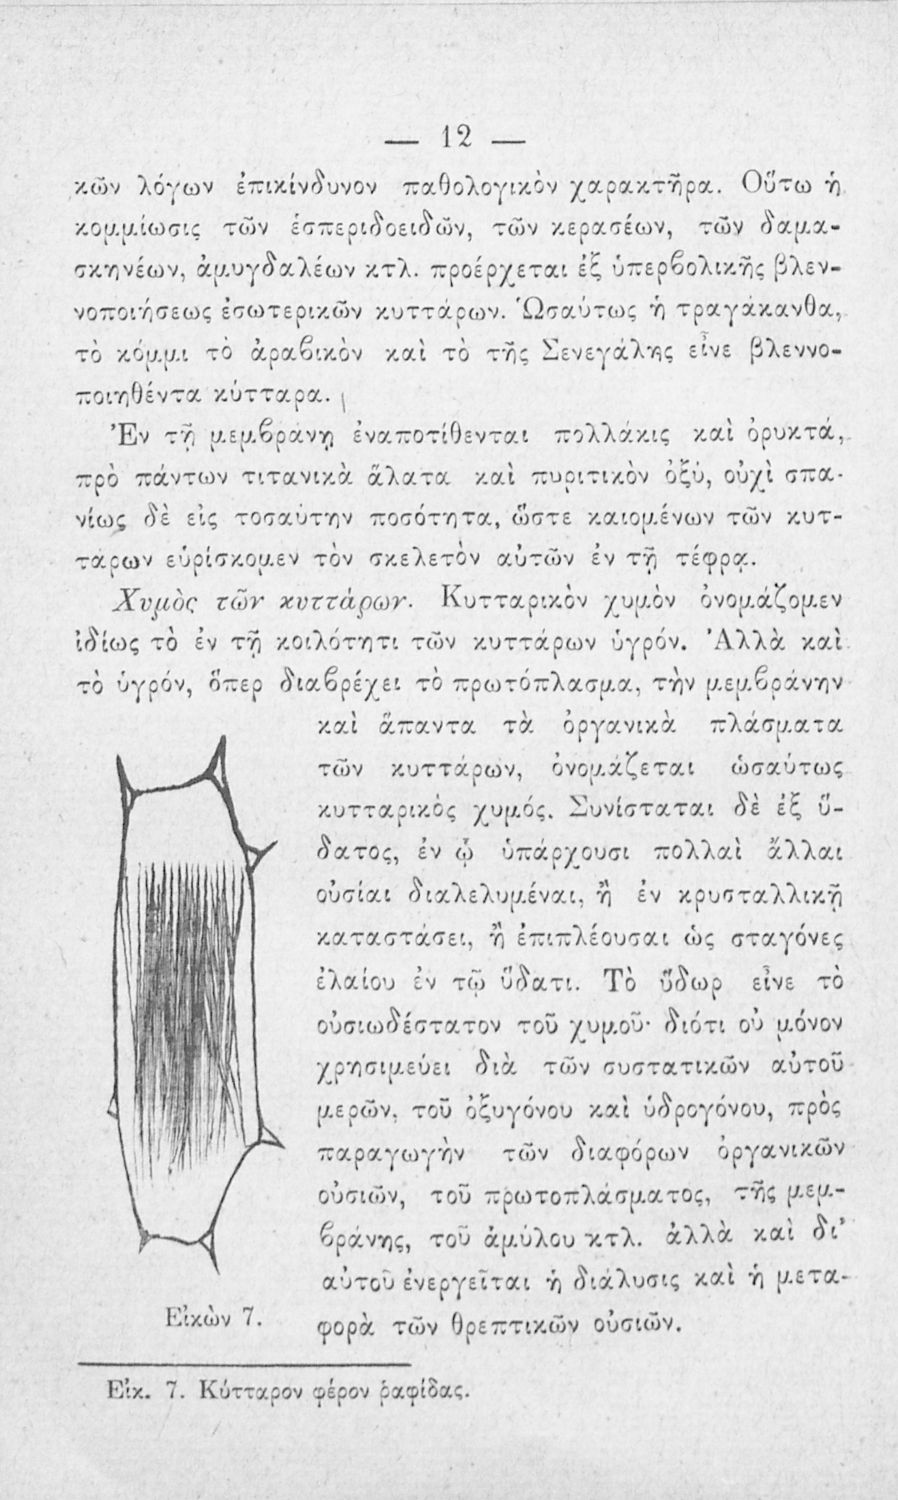 — 12 —
κῶν λόγων ἐπικίνδυνον παθολογικὸν χαρακτῆρα. Οὕτω ἡ
κομμίωσις τῶν ἑσπεριδοειδῶν, τῶν κερασέων, τῶν δαμα-
σκηνέων, ἀμυγδαλέων κτλ. προέρχεται ἐξ ὑπερβολικῆς βλεν-
νοποιήσεως ἐσωτερικῶν κυττάρων. Ὡσαύτως ἡ τραγάκανθα,
τὸ κόμμι τὸ ἀραβικὸν καὶ τὸ τῆς Σενεγάλης εἶνε βλεννο-
ποιηθέντα κύτταρα.
Ἐν τῇ μεμβράνῃ ἐναποτίθενται πολλάκις καὶ ὀρυκτά,
πρὸ πάντων τιτανικὰ ἅλατα καὶ πυριτικὸν ὀξύ, οὐχὶ σπα-
νίως δὲ εἰς τοσαύτην ποσότητα, ὥστε καιομένων τῶν κυτ-
τάρων εὑρίσκομεν τὸν σκελετὸν αὐτῶν ἐν τῇ τέφρᾳ.
Χυμὸς τῶν κυττάρων. Κυτταρικὸν χυμὸν ὀνομάζομεν
ἰδίως τὸ ἐν τῇ κοιλότητι τῶν κυττάρων ὑγρόν. Ἀλλὰ καὶ
τὸ ὑγρόν, ὅπερ διαβρέχει τὸ πρωτόπλασμα, τὴν μεμβράνην
καὶ ἅπαντα τὰ ὀργανικὰ πλάσματα
τῶν κυττάρων, ὀνομάζεται ὡσαύτως
κυτταρικὸς χυμός. Συνίσταται δὲ ἐξ ὕ-
δατος, ἐν ᾧ ὑπάρχουσι πολλαὶ ἄλλαι
οὐσίαι διαλελυμέναι, ἢ ἐν κρυσταλλικῇ
καταστάσει, ἢ ἐπιπλέουσαι ὡς σταγόνες
ἐλαίου ἐν τῷ ὕδατι. Τὸ ὕδωρ εἶνε τὸ
οὐσιωδέστατον τοῦ χυμοῦ· διότι οὐ μόνον
χρησιμεύει διὰ τῶν συστατικῶν αὐτοῦ
μερῶν, τοῦ ὀξυγόνου καὶ ὑδρογόνου, πρὸς
παραγωγὴν τῶν διαφόρων ὀργανικῶν
οὐσιῶν, τοῦ πρωτοπλάσματος, τῆς μεμ-
βράνης, τοῦ ἀμύλου κτλ. ἀλλὰ καὶ δι’
αὐτοῦ ἐνεργεῖται ἡ διάλυσις καὶ ἡ μετα-
φορὰ τῶν θρεπτικῶν οὐσιῶν.
Εἰκὼν 7.
Εἰκ. 7. Κύτταρον φέρον ῥαφίδας.